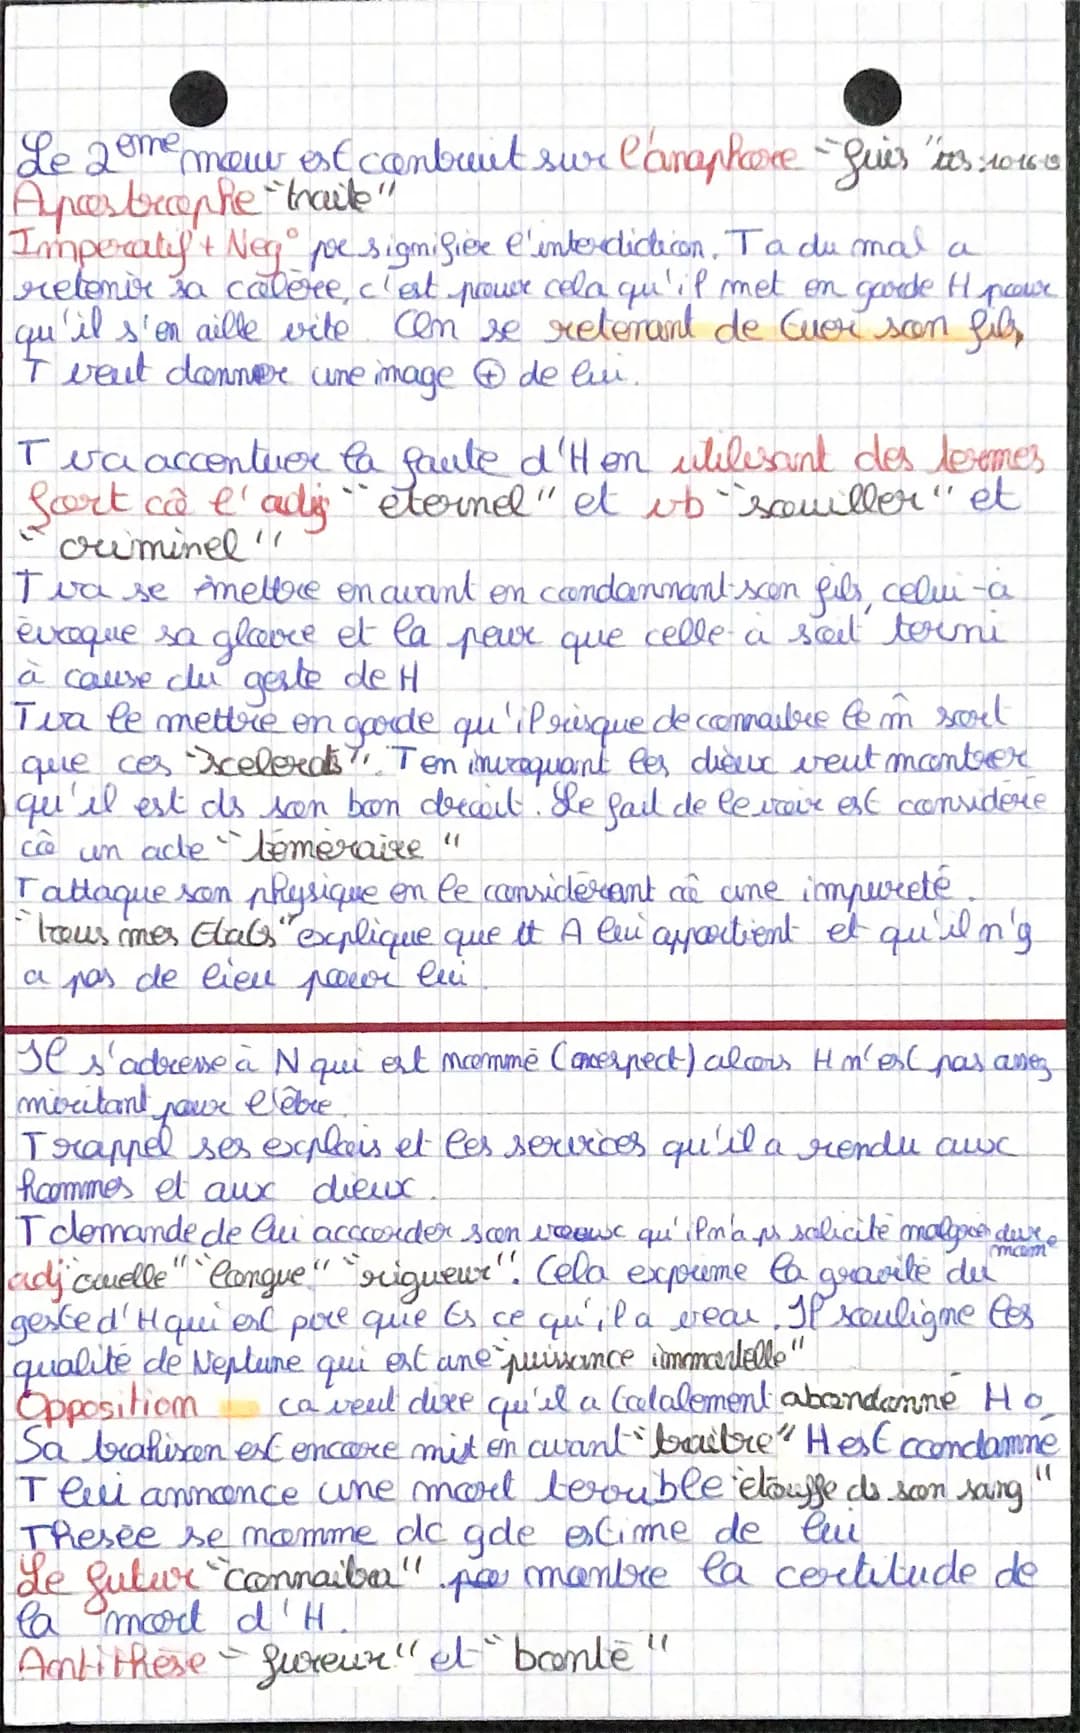 Le 2eme mouv est contruit sur l'anaphore "fuis"
Apostrophe "traite"
Imperatif + Neg° pr signifier l'interdiction. T a du mal a
retenir sa colère, c'est pour cela qu'il met en garde H pour
qu'il s'en aille vite. En se retenant de tuer son fils,
T veut donner une image ⊕ de lui.
T va accentuer la faute d'H en utilisant des termes
fort cô l'adj "éternel" et vb "souiller" et
"criminel"
T va se mettre en avant en condamnant son fils, celui-ci
évoque sa gloire et la peur que celle-ci soit terni
à cause du geste de H
T va le mettre en garde qu'il risque de connaitre le m̂ sort
que ces "scelerats". T en invoquant les dieux veut montrer
qu'il est ds son bon droit. Le fait de le voir est considéré
cô un acte "téméraire"
T attaque son physique en le considérant cô une impureté.
"tous mes Etats" explique que tt A lui appartient et qu'il n'y
a pas de lieu pour lui
Il s'adresse à N qui est nommé (respect) alors H n'est pas assez
méritant pour l'être
T rappel ses explois et les services qu'il a rendu aux
hommes et aux dieux.
T demande de lui acccorder son voeux qu'il n'a ps solicité malgré dure
mom
adj "cruelle" "longue" "rigueur". Cela exprime la gravité du
geste d'H qui est pire que ts ce qu'il a vecu. Il souligne les
qualité de Neptune qui est une "puissance immortelle"
Opposition ca veut dire qu'il a totalement abandonné H
Sa trahison est encore mit en avant "traitre" H est condamné
T lui annonce une mort terrible "étouffe ds son sang"
Thesée se nomme dc gde estime de lui
Le futur "connaitra" montre la certitude de
la mort d'H.
Antithèse "fureur" et "bonté"